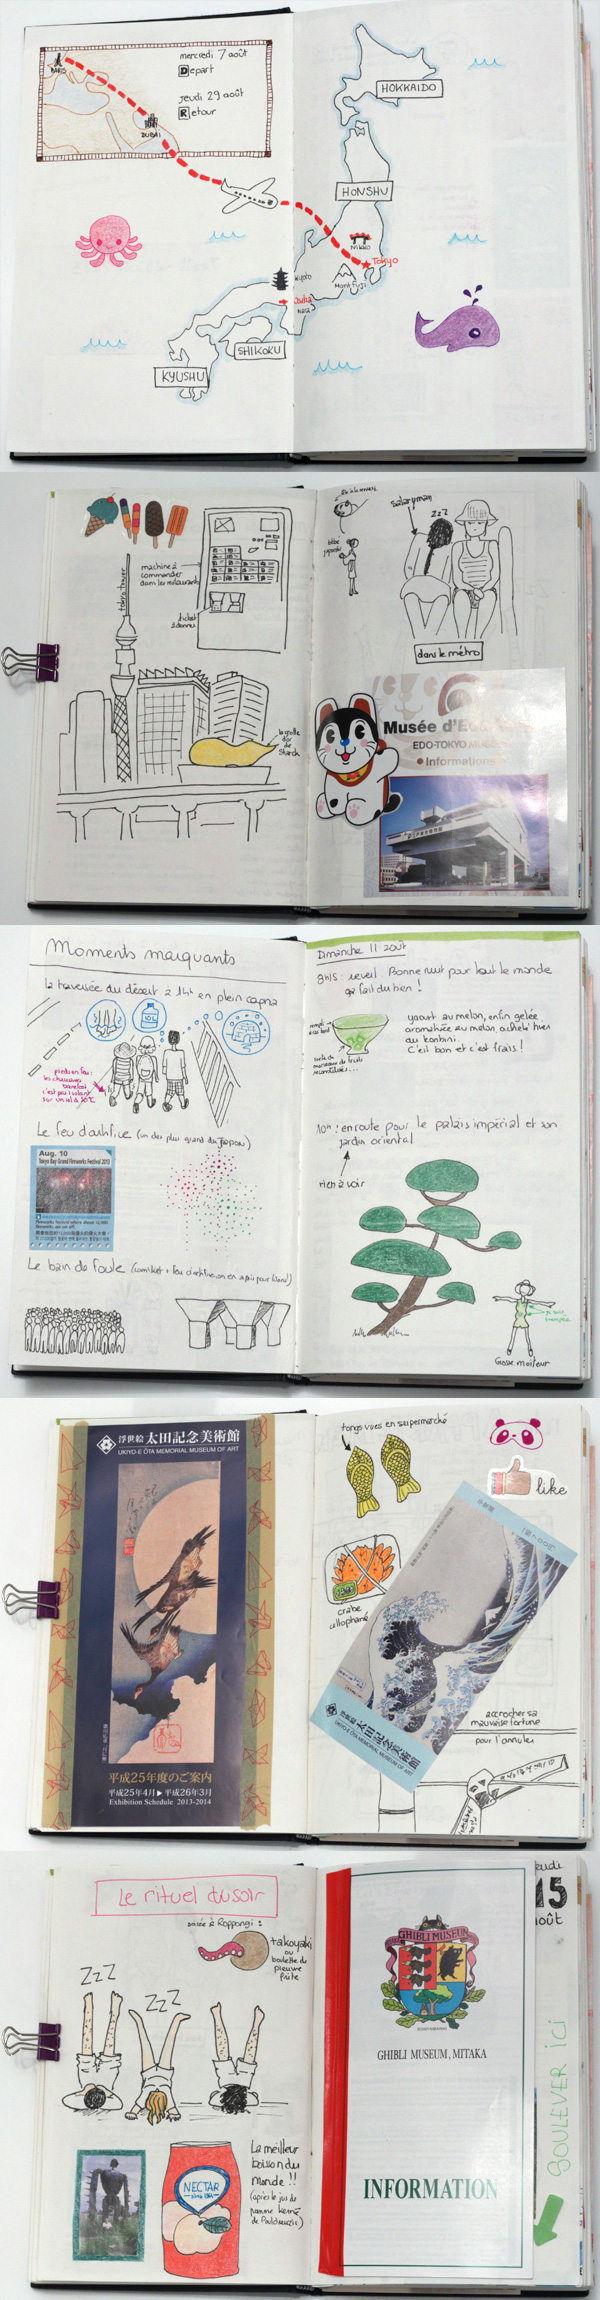 mercredi 7 août
Depart
jeudi 29 août
Retour
PARIS
DUBAI
HOKKAIDO
HONSHU
Nikko
Tokyo
Mont Fuji
Kyoto
Osaka
SHIKOKU
KYUSHU
machine à
commander
dans les restaurants
ticket
à donner
tokyo tower
la goutte
d'or
de
Starck
bébé
japonais
salaryman
ZZZ
dans le métro
Musée d'Edo
EDO-TOKYO
Informations
Moments marquants
la traversée du désert à 14h en plein cagna
10L
pieds en feu:
les chaussures
barefoot
c'est pas isolant
sur un sol à 50°C
Le feu d'artifice (un des plus grand du Japon)
Aug. 10
Tokyo Bay Grand Fireworks Festival 2013
Le bain de foule (comiket + feu d'artifice
Dimanche 11 août
8h15: reveil. Bonne nuit pour tout le monde
ça fait du bien!
yaourt au melon, enfin gelée
aromatisée au melon acheté hier
au konbini.
C'est bon et c'est frais!
10h: en route pour le palais impérial et son
jardin oriental
rien à voir
Grosse moiteur
浮世絵 太田記念美術館
UKIYO-E OTA MEMORIAL MUSEUM OF ART
平成25年度のご案内
平成25年4月▶平成26年3月
Exhibition Schedule 2013-2014
tongs vues en supermarché
like
crabe
cellophané
浮世絵 太田記念美術館
UKIYO-E OTA MEMORIAL MUSEUM OF ART
accrocher sa
mauvaise fortune
pour l'annuler
Le rituel du soir
Roppongi:
takoyaki
ou
boulette de
pieuvre
frite
ZZZ
ZZZ
NECTAR
La meilleur
boisson du
Monde!!
(après le jus de
pomme kerné
de Pouldreuzic)
GHIBLI MUSEUM
GHIBLI MUSEUM, MITAKA
INFORMATION
jeudi
15
août
SOULEVER ici